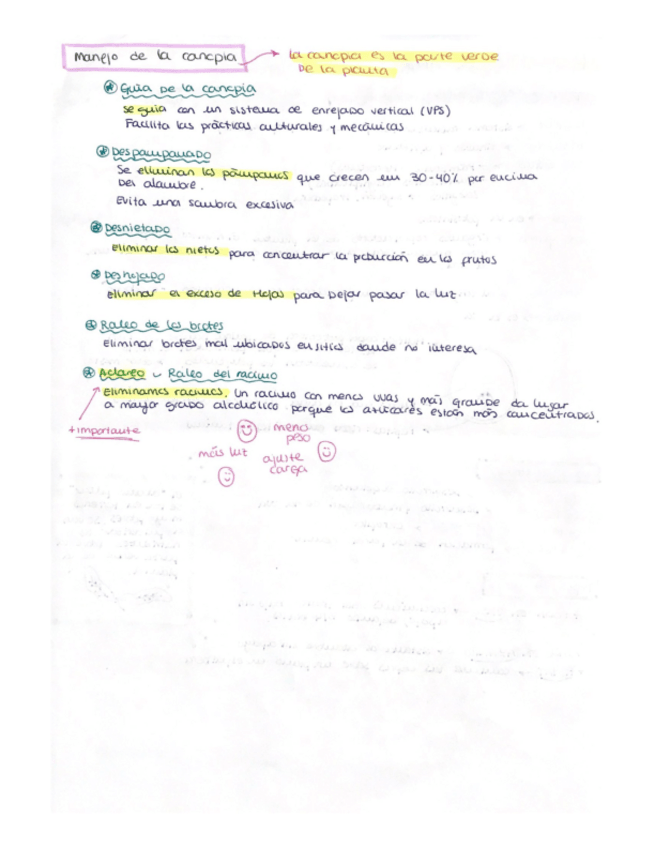 Manejo de la canopia → la canopia es la parte verde
De la planta
Guia De la canopia
se guia con un sistema de enrejado vertical (VPS)
Facilita las prácticas culturales y mecánicas
Despampanado
Se eliminan los pámpanos que crecen un 30-40% por encima
Del alambre.
Evita una sombra excesiva
Desnietado
Eliminar los nietos para concentrar la producción en los frutos
Deshojado
eliminar el exceso de Hojas para Dejar pasar la luz
Raleo de los brotes
Eliminar brotes mal ubicados en sitios donde no interesa
Aclareo o Raleo del racimo
Eliminamos racimos. Un racimo con menos uvas y más grande da lugar
a mayor grado alcohólico porque los azúcares están más concentrados.
+importante
menos
peso
más luz
ajuste
carga